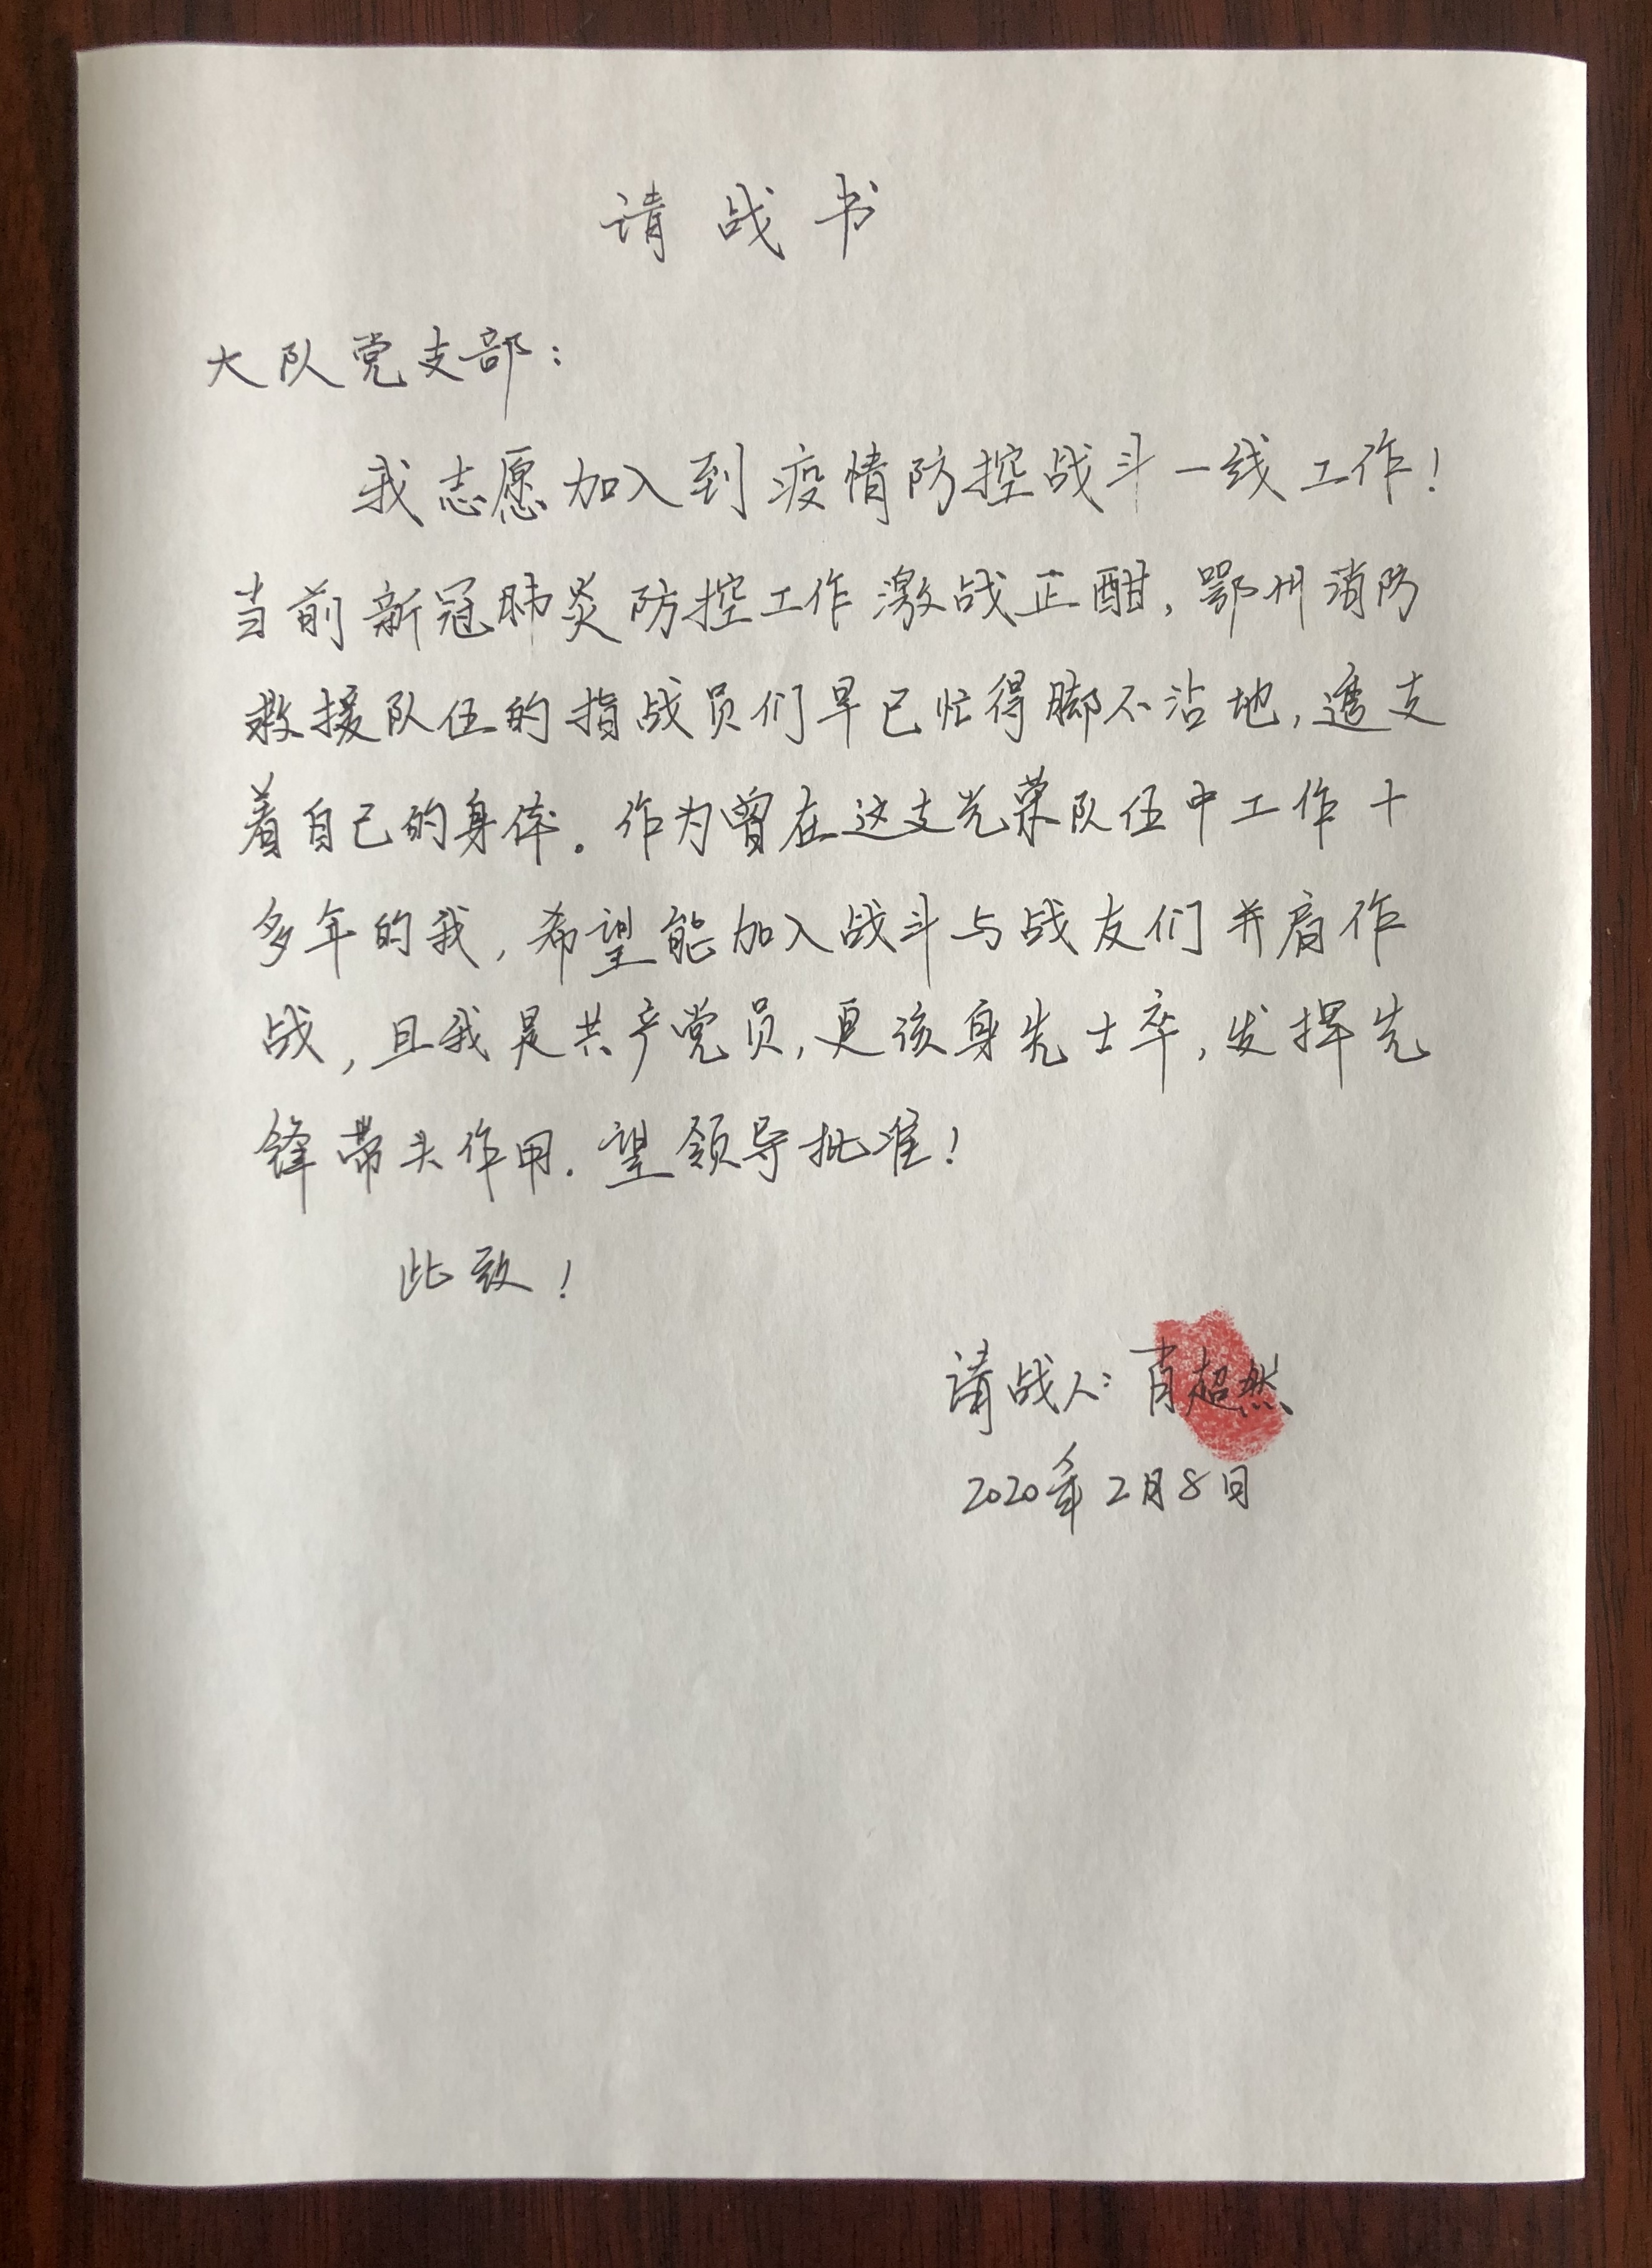 请战书
大队党支部:
我志愿加入到疫情防控战斗一线工作!
当前新冠肺炎防控工作激战正酣,鄂州消防
救援队伍的指战员们早已忙得脚不沾地,透支
着自己的身体。作为曾在这支光荣队伍中工作十
多年的我,希望能加入战斗与战友们并肩作
战,且我是共产党员,更该身先士卒,发挥先
锋带头作用.望领导批准!
此致!
请战人:肖超然
2020年2月8日